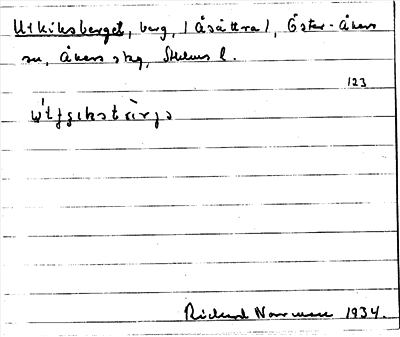 Utkiksberget, berg, (Åsättra), Öster-Åkers
sn, Åkers skg, Sthlms l.
123
Richard Norrman 1934.